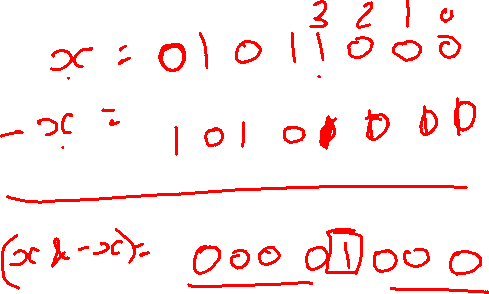 3 2 1 0
x = 0 1 0 1 1 0 0 0
-x = 1 0 1 0 1 0 0 0
(x & -x) = 0 0 0 0 1 0 0 0